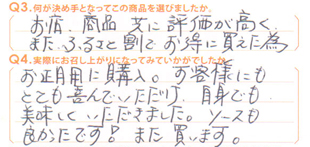 Q3.何が決め手となってこの商品を選びましたか。
お店、商品 共に評価が高く、
また、ふるさと割でお得に買えた為
Q4.実際にお召し上がりになってみていかがでしたか。
お正月用に購入。お客様にも
とても喜んでいただけ、自身でも
美味しくいただきました。ソースも
良かったです! また買います。